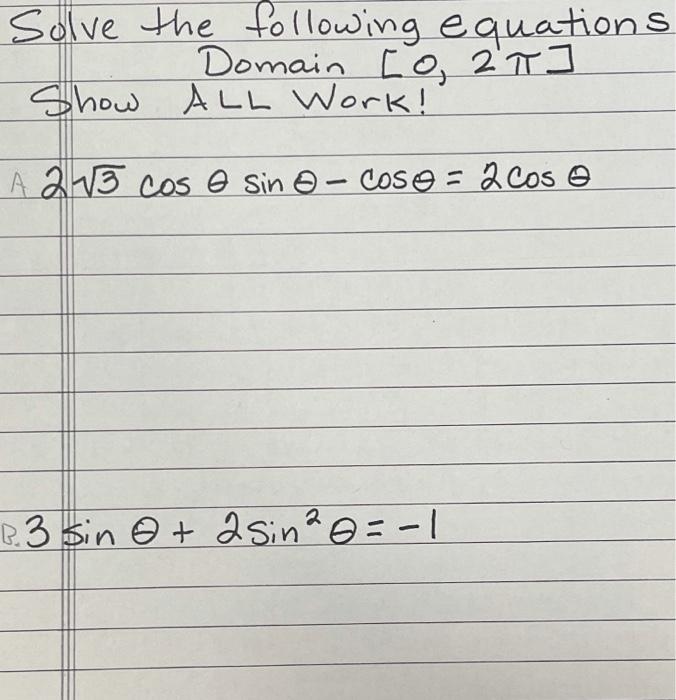 Solve the following equations
Domain [0, 2π]
Show ALL Work!
A 2√3 cos θ sin θ - cos θ = 2 cos θ
B. 3 sin θ + 2 sin² θ = -1